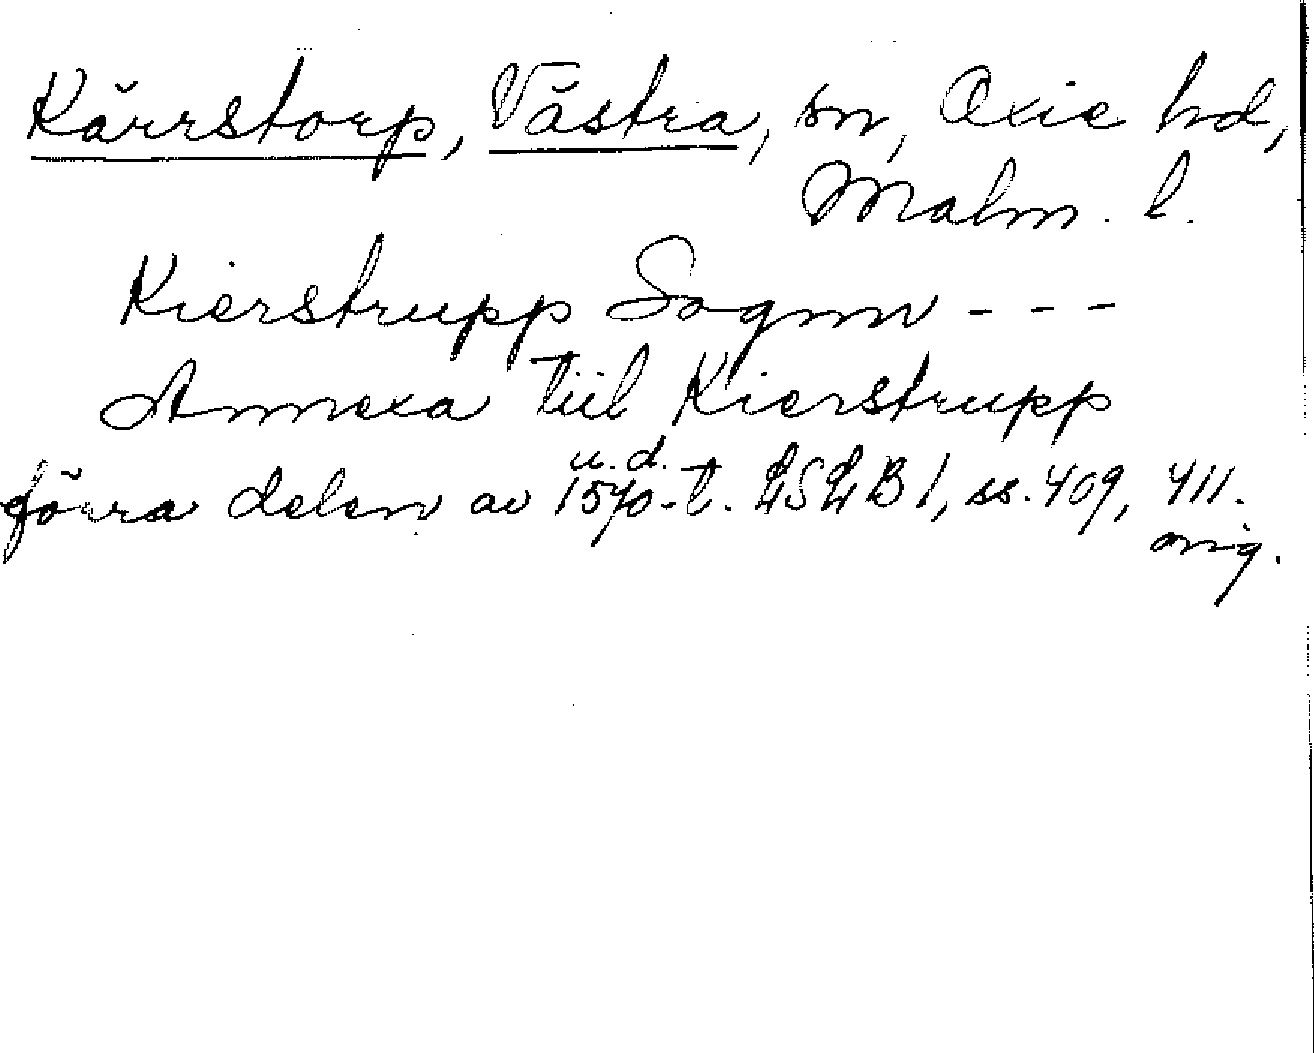 Kärrstorp, Västra, sn, Oxie hd,
Malm. l.
Kierstrupp Sognn - - -
Annexa tiil Kierstrupp
u. d.
förra delen av 1570-t. LSLB 1, ss. 409, 411.